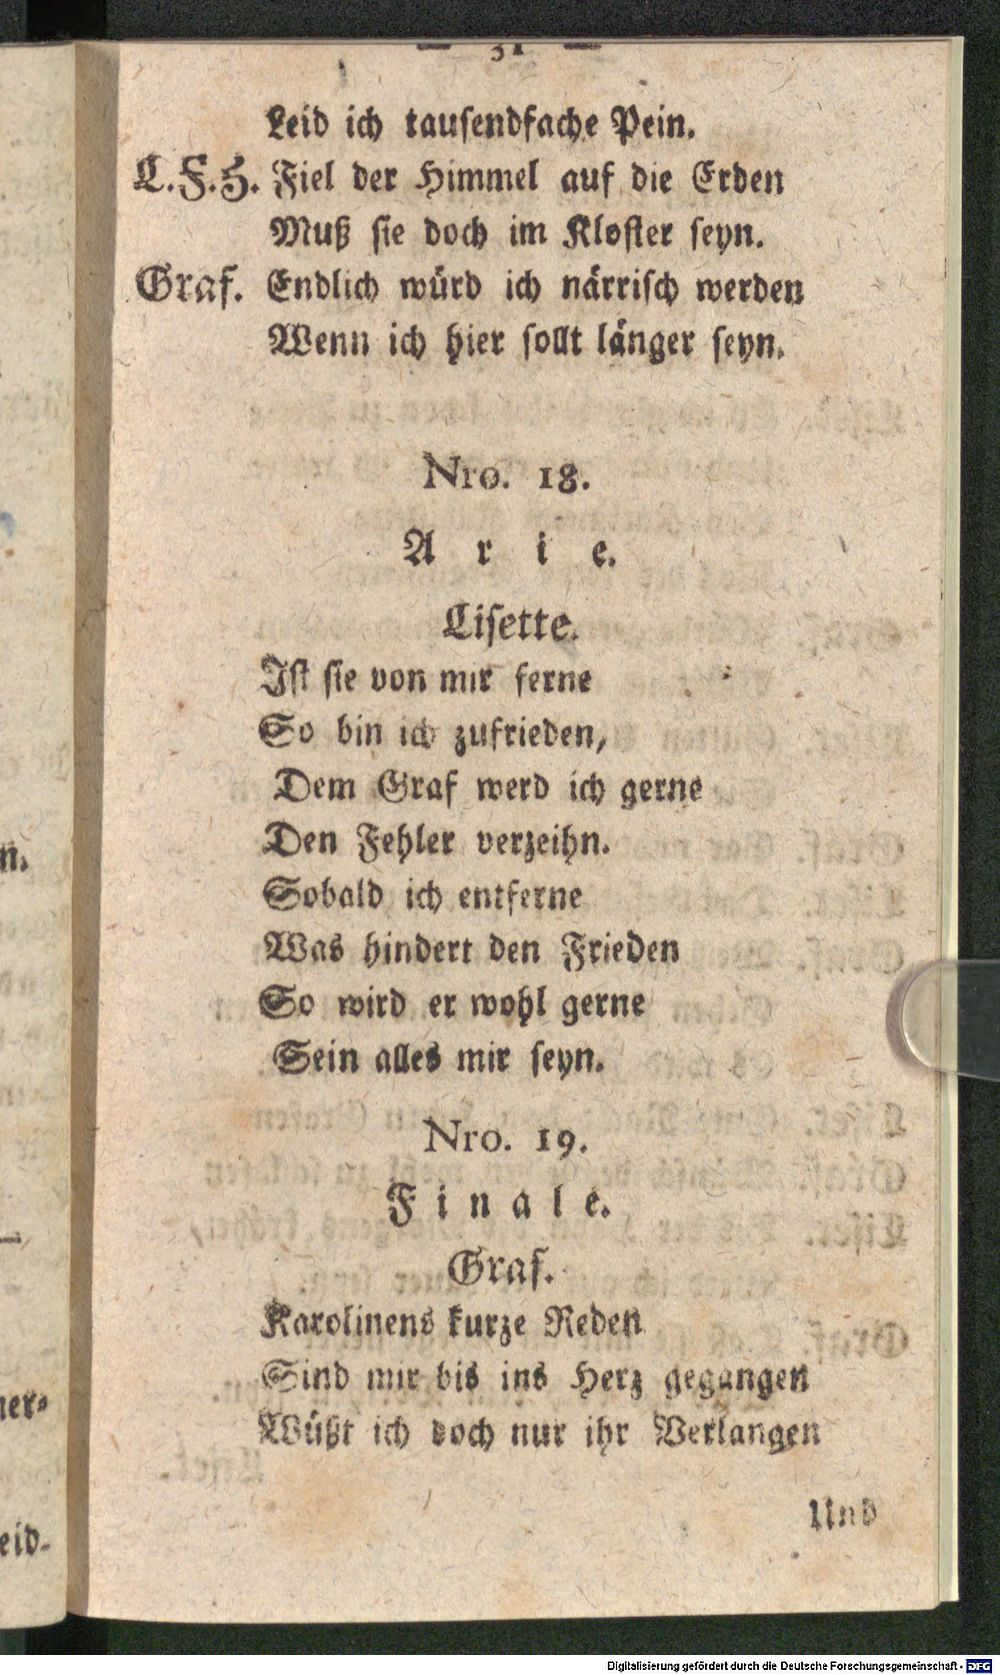 — 31 —
Leid ich tauſendfache Pein.
L.F.H. Fiel der Himmel auf die Erden
Muß ſie doch im Kloſter ſeyn.
Graf. Endlich würd ich närriſch werden
Wenn ich hier ſollt länger ſeyn.
Nro. 18.
Arie.
Liſette.
Iſt ſie von mir ferne
So bin ich zufrieden,
Dem Graf werd ich gerne
Den Fehler verzeihn.
Sobald ich entferne
Was hindert den Frieden
So wird er wohl gerne
Sein alles mir ſeyn.
Nro. 19.
Finale.
Graf.
Karolinens kurze Reden
Sind mir bis ins Herz gegangen
Wüßt ich doch nur ihr Verlangen
Und
n.
ner-
eid-
Digitalisierung gefördert durch die Deutsche Forschungsgemeinschaft - DFG